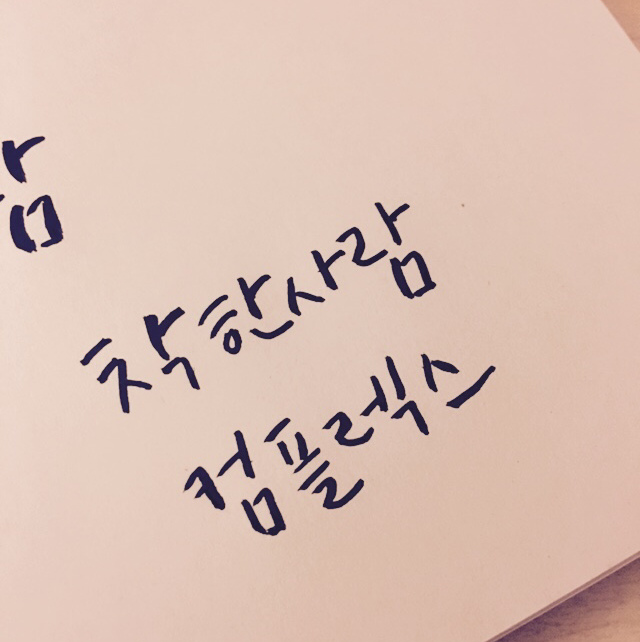 착한사람
컴플렉스